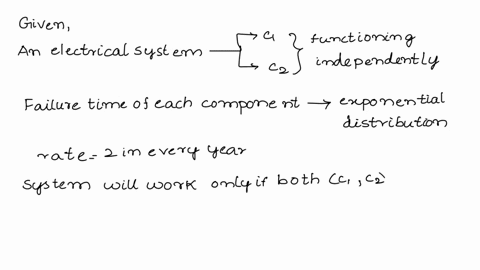 Given,
An electrical system → c1 } functioning
→ c2 } independently
Failure time of each component → exponential
distribution
rate = 2 in every year
System will work only if both (c1, c2)